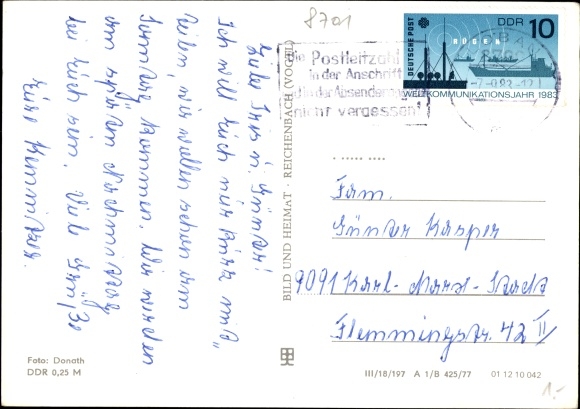 8701
DEUTSCHE POST
DDR 10
RÜGEN
WELTKOMMUNIKATIONSJAHR 1983
Die Postleitzahl
in der Anschrift
und in der Absenderangabe
nicht vergessen!
BILD UND HEIMAT · REICHENBACH (VOGTL)
Ich will Euch nur kurz mit-
teilen, wir wollen schon am
Sonntag kommen. Wir werden
am späten Nachmittag
bei Euch sein. Viele Grüße
Fam.
Günter Kasper
9091 Karl-Marx-Stadt
Flemmingstr. 42 II
Foto: Donath
DDR 0,25 M
III/18/197 A 1/B 425/77 01 12 10 042
1.-